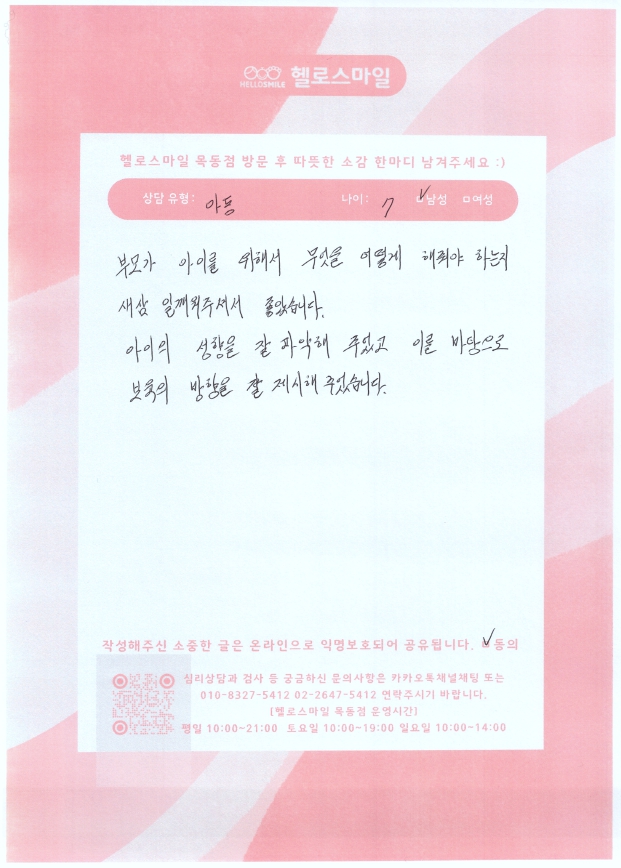 HELLOSMILE 헬로스마일
헬로스마일 목동점 방문 후 따뜻한 소감 한마디 남겨주세요 :)
상담 유형: 아동 나이: 7 ✓남성 □여성
부모가 아이를 위해서 무엇을 어떻게 해줘야 하는지
새삼 일깨워주셔서 좋았습니다.
아이의 성향을 잘 파악해 주었고 이를 바탕으로
보육의 방향을 잘 제시해 주었습니다.
작성해주신 소중한 글은 온라인으로 익명보호되어 공유됩니다. ✓동의
심리상담과 검사 등 궁금하신 문의사항은 카카오톡채널채팅 또는
010-8327-5412 02-2647-5412 연락주시기 바랍니다.
[헬로스마일 목동점 운영시간]
평일 10:00~21:00 토요일 10:00~19:00 일요일 10:00~14:00